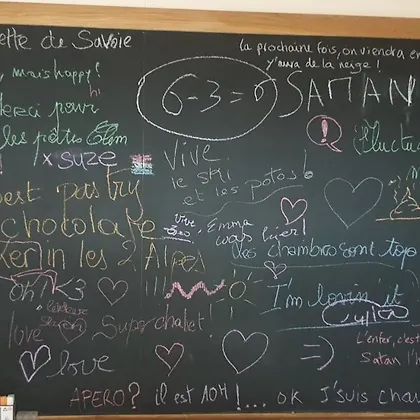 ette de Savoie
la prochaine fois, on viendra en
y'aura de la neige !
, mais happy !
hi
6-3=6
SATAN
Merci pour
les pâtes
!
Fluctu
x SUZE
Vive
le ski
et les potos !
best pastry
chocolate
vive
Emma
was here !
les chambres sont top
in les 2 Alpes
Oh <3
!!!
I'm lovin' it
love
Super chalet !
=)
L'enfer, c'est
Satan l'h
love
APERO ? il est 10H !... OK J'SUIS Cha